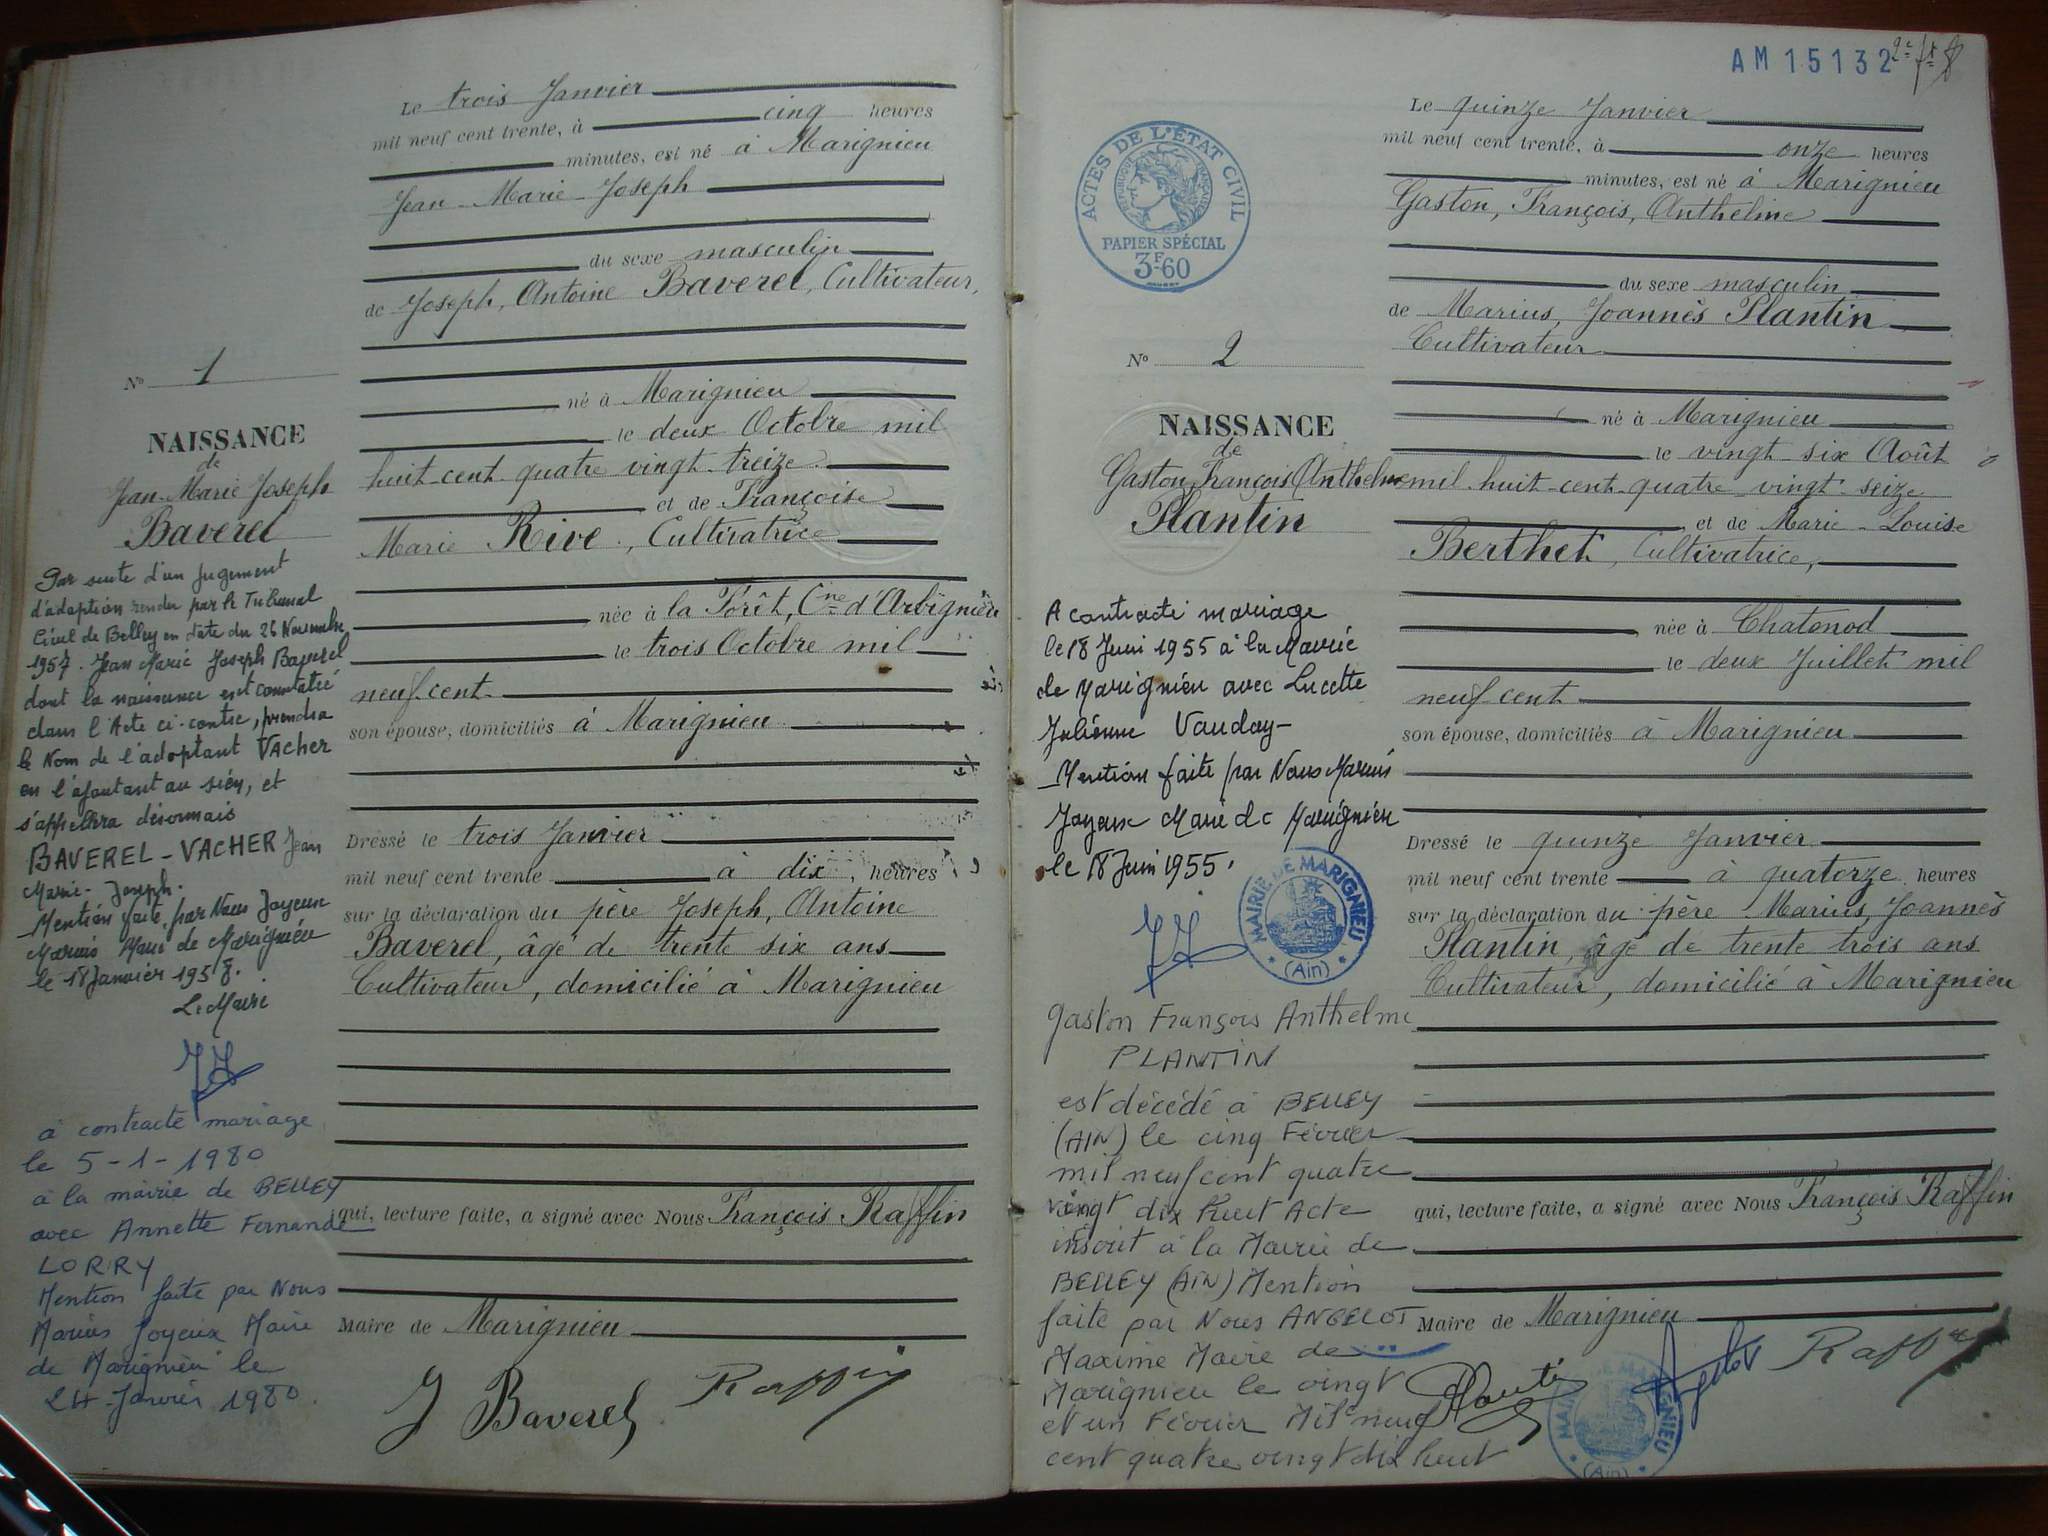 Le trois Janvier
mil neuf cent trente, à cinq heures
minutes, est né à Marignieu
Jean-Marie-Joseph
du sexe masculin
de Joseph, Antoine Baverel, Cultivateur,
né à Marignieu
le deux Octobre mil
huit-cent-quatre vingt-treize
et de Françoise
Marie Rive, Cultivatrice
née à la Forêt, Cne d'Arbignieu
le trois Octobre mil
neuf cent
son épouse, domiciliés à Marignieu
Dressé le trois Janvier
mil neuf cent trente à dix heures
sur la déclaration du père Joseph, Antoine
Baverel, âgé de trente six ans
Cultivateur, domicilié à Marignieu
qui, lecture faite, a signé avec Nous François Raffin
Maire de Marignieu
J Baverel Raffin
No 1
NAISSANCE
de
Jean-Marie Joseph
Baverel
Par suite d'un Jugement
d'adoption rendu par le Tribunal
Civil de Belley en date du 26 Novembre
1957. Jean Marie Joseph Baverel
dont la naissance est constatée
dans l'Acte ci-contre, prendra
le Nom de l'adoptant VACHER
en l'ajoutant au sien, et
s'appellera désormais
BAVEREL-VACHER Jean
Marie-Joseph.
Mention faite par Nous Joyeux
Marius Maire de Marignieu
le 18 Janvier 1958.
Le Maire
JJ
à contracté mariage
le 5-1-1980
à la mairie de BELLEY
avec Annette Fernande
LORRY
Mention faite par Nous
Marius Joyeux Maire
de Marignieu le
24 Janvier 1980.
AM 15132
ACTES DE L'ÉTAT CIVIL
RÉPUBLIQUE FRANÇAISE
PAPIER SPÉCIAL
3F60
No 2
NAISSANCE
de
Gaston François Anthelme
Plantin
A contracté mariage
le 18 Juin 1955 à la Mairie
de Marignieu avec Lucette
Julienne Vauday-
Mention faite par Nous Marius
Joyeux Maire de Marignieu
le 18 Juin 1955.
JJ
MAIRIE DE MARIGNIEU
(Ain)
Gaston François Anthelme
PLANTIN
est décédé à BELLEY
(AIN) le cinq Février
mil neuf cent quatre
vingt dix huit Acte
inscrit à la Mairie de
BELLEY (AIN) Mention
faite par Nous ANGELOT
Maxime Maire de
Marignieu le vingt
et un Février Mil neuf
cent quatre vingt dix huit
Le quinze Janvier
mil neuf cent trente, à onze heures
minutes, est né à Marignieu
Gaston, François, Anthelme
du sexe masculin
de Marius, Joannès Plantin
Cultivateur
né à Marignieu
le vingt-six Août
mil-huit-cent-quatre-vingt-seize
et de Marie-Louise
Berthet, Cultivatrice,
née à Chatonod
le deux Juillet mil
neuf cent
son épouse, domiciliés à Marignieu
Dressé le quinze Janvier
mil neuf cent trente à quatorze heures
sur la déclaration du père Marius, Joannès
Plantin, âgé de trente trois ans
Cultivateur, domicilié à Marignieu
qui, lecture faite, a signé avec Nous François Raffin
Maire de Marignieu
Plantin Angelot Raffin
MAIRIE DE MARIGNIEU
(Ain)